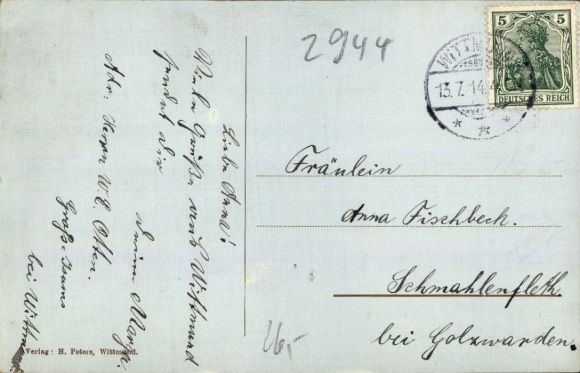 Liebe Anna!
Viele Grüße aus Wittmund
sendet dir
deine
Adr. Herrn W. E. Otten.
bei
Verlag: H. Peters, Wittmund.
2944
26,-
WITTM
13.7.14
5 5
DEUTSCHES REICH
Fräulein
Anna Fischbeck.
Schmahlenfleth.
bei Golzwarden.